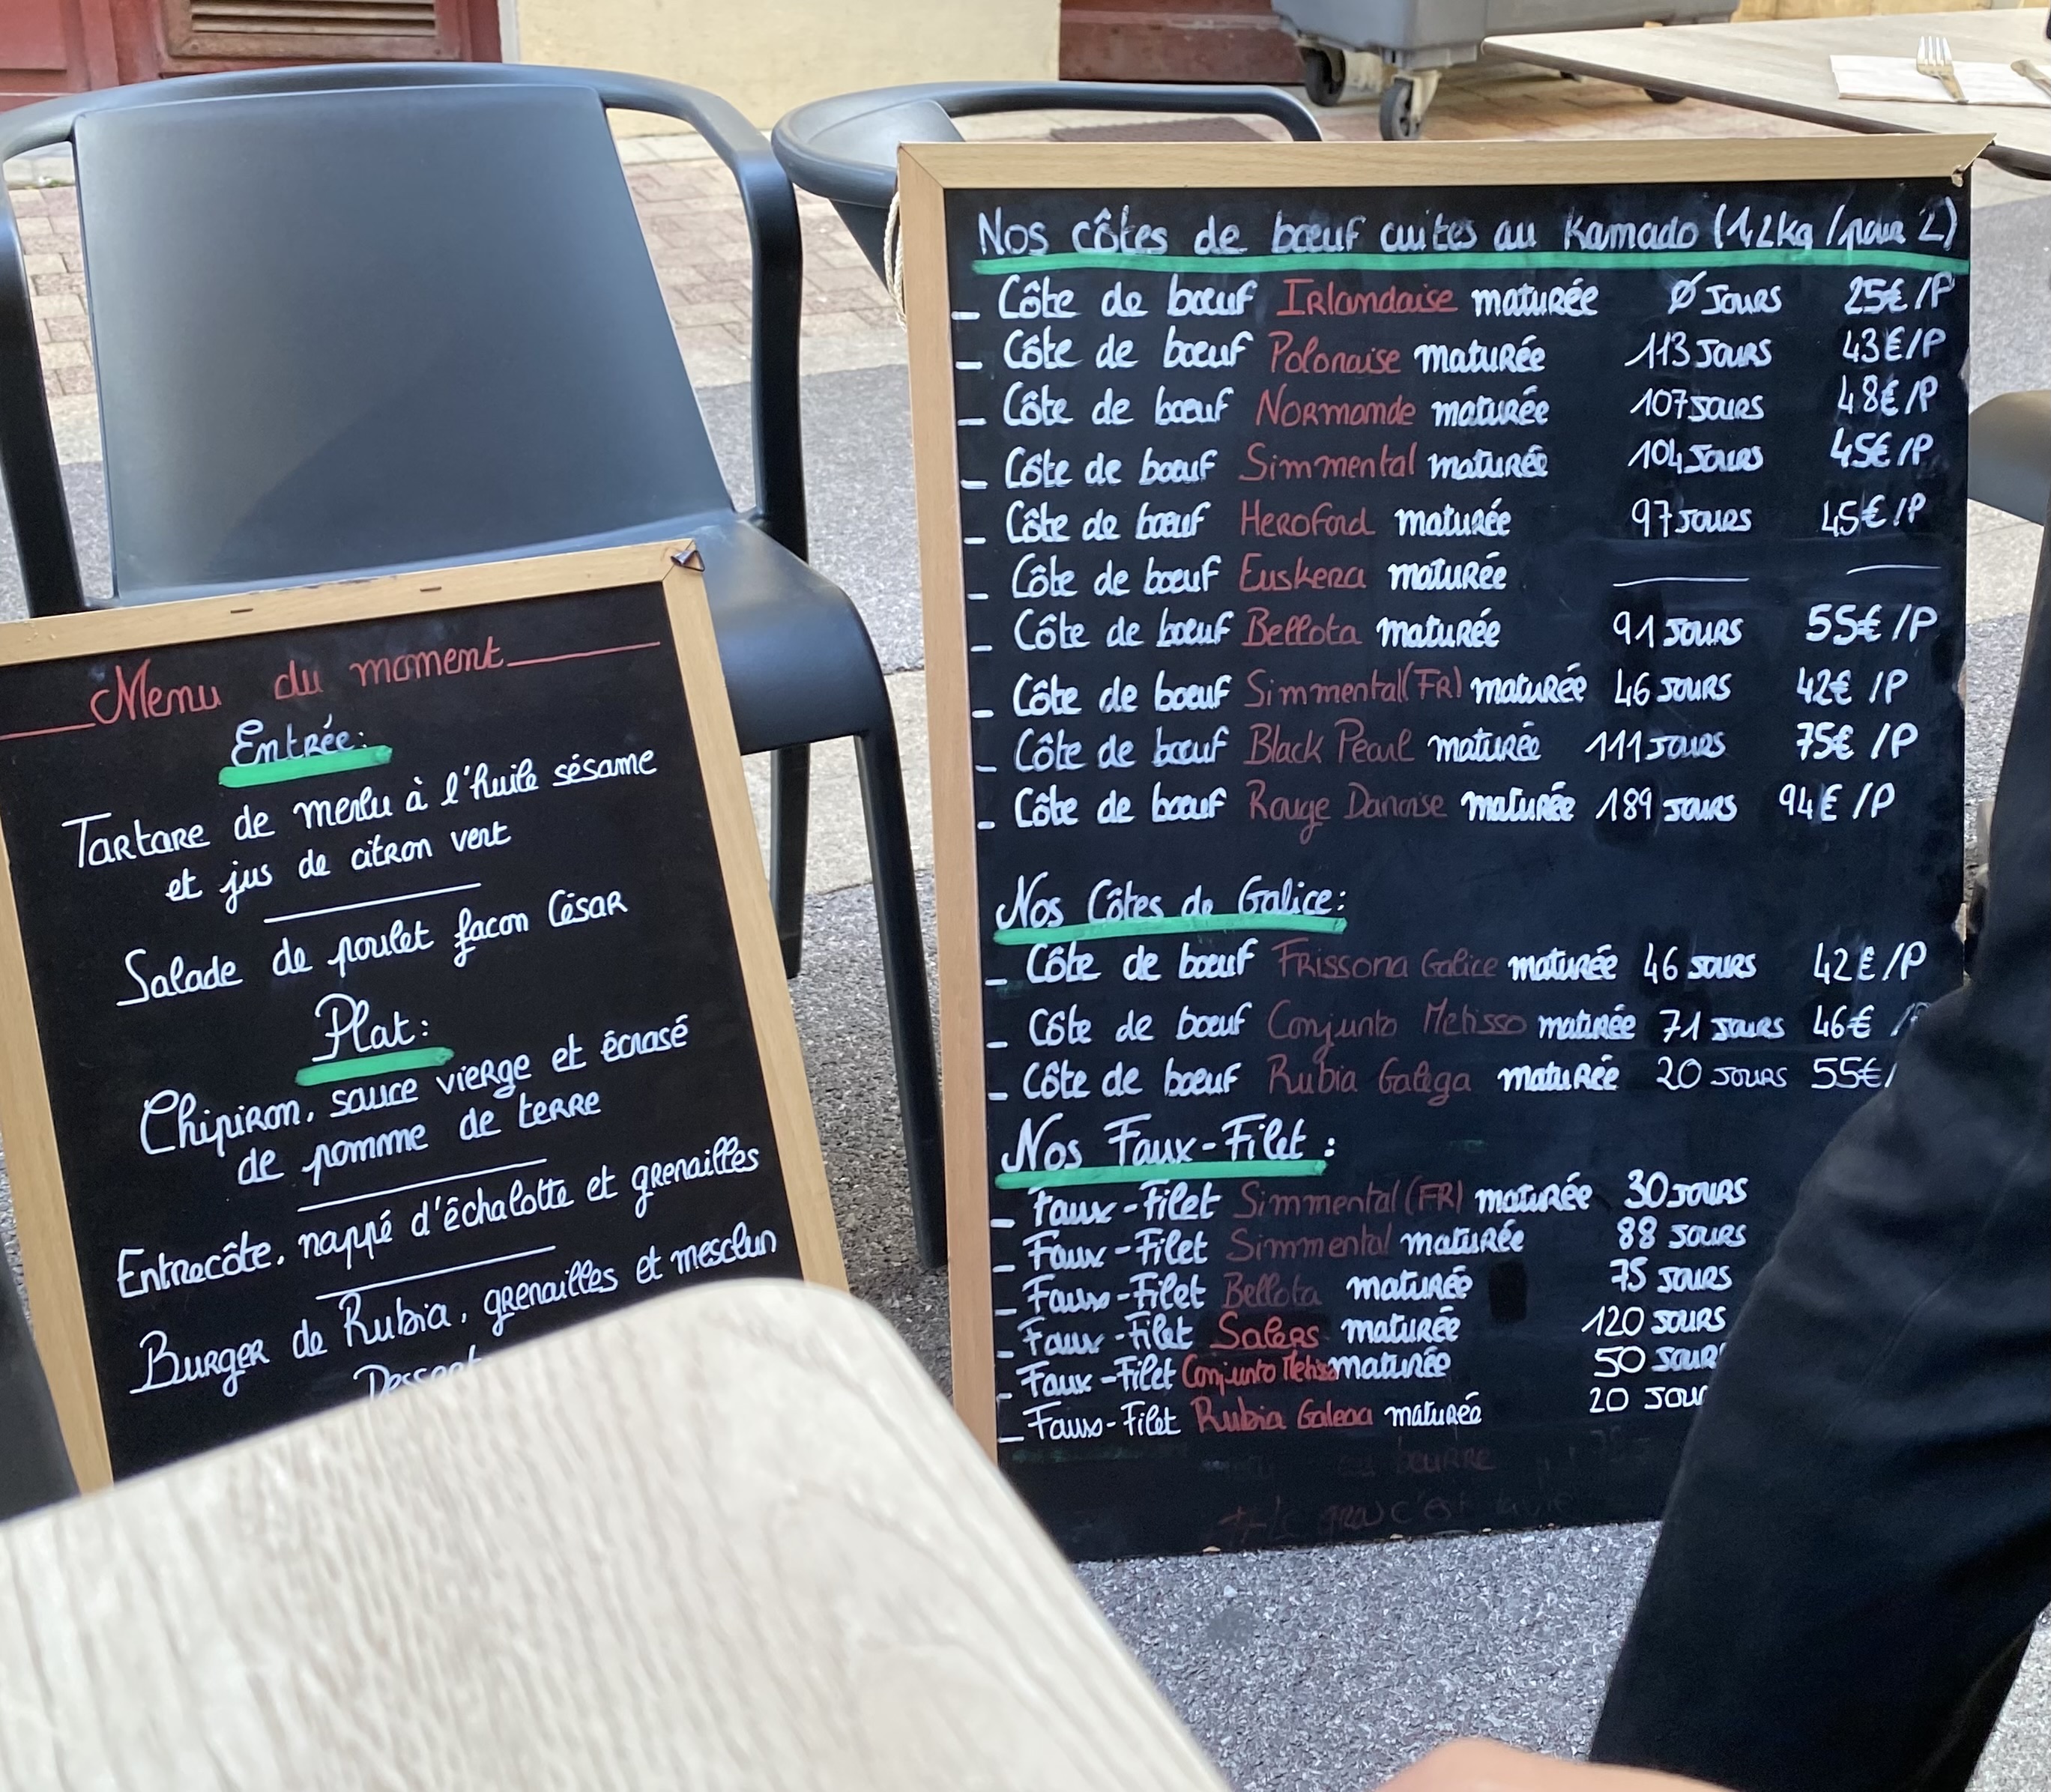 Menu du moment
Entrée:
Tartare de merlu à l'huile sésame
et jus de citron vert
Salade de poulet façon César
Plat:
Chipiron, sauce vierge et écrasé
de pomme de terre
Entrecôte, nappé d'échalotte et grenailles
Burger de Rubia, grenailles et mesclun
Nos côtes de bœuf cuites au Kamado (1,2kg/pour 2)
_ Côte de bœuf Irlandaise maturée Ø Jours 25€/P
_ Côte de bœuf Polonaise maturée 113 Jours 43€/P
_ Côte de bœuf Normande maturée 107 Jours 48€/P
_ Côte de bœuf Simmental maturée 104 Jours 45€/P
_ Côte de bœuf Heroford maturée 97 Jours 45€/P
_ Côte de bœuf Euskera maturée
_ Côte de bœuf Bellota maturée 91 Jours 55€/P
_ Côte de bœuf Simmental (FR) maturée 46 Jours 42€/P
_ Côte de bœuf Black Pearl maturée 111 Jours 75€/P
_ Côte de bœuf Rouge Danoise maturée 189 Jours 94€/P
Nos Côtes de Galice:
_ Côte de bœuf Frissona Galice maturée 46 Jours 42€/P
_ Côte de bœuf Conjunto Metisso maturée 71 Jours 46€ /P
_ Côte de bœuf Rubia Galega maturée 20 Jours 55€/
Nos Faux-Filet:
_ Faux-Filet Simmental (FR) maturée 30 Jours
_ Faux-Filet Simmental maturée 88 Jours
_ Faux-Filet Bellota maturée 75 Jours
_ Faux-Filet Salers maturée 120 Jours
_ Faux-Filet Conjunto Metisso maturée 50 Jours
_ Faux-Filet Rubia Galega maturée 20 Jour
beurre
gras c'est la vie